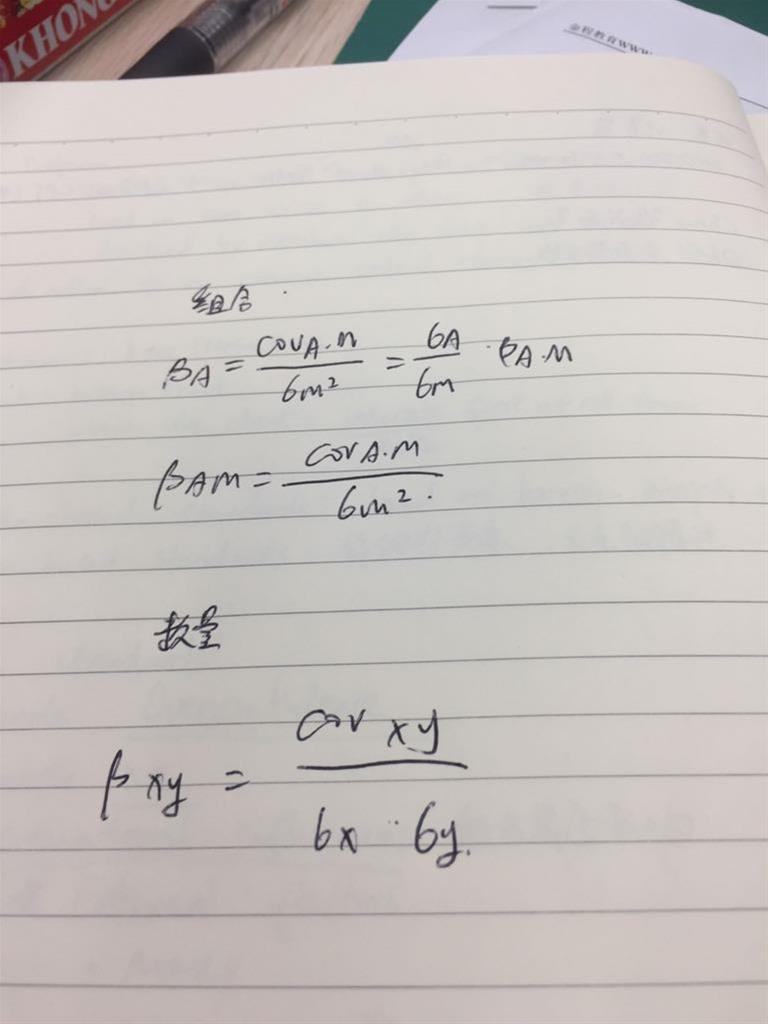 KHONG
金程教育WWW
组合.
βA = covA.M / 6m² = 6A / 6m · βA.M
βAM = covA.M / 6m².
数量
β xy = cov xy / 6x · 6y.